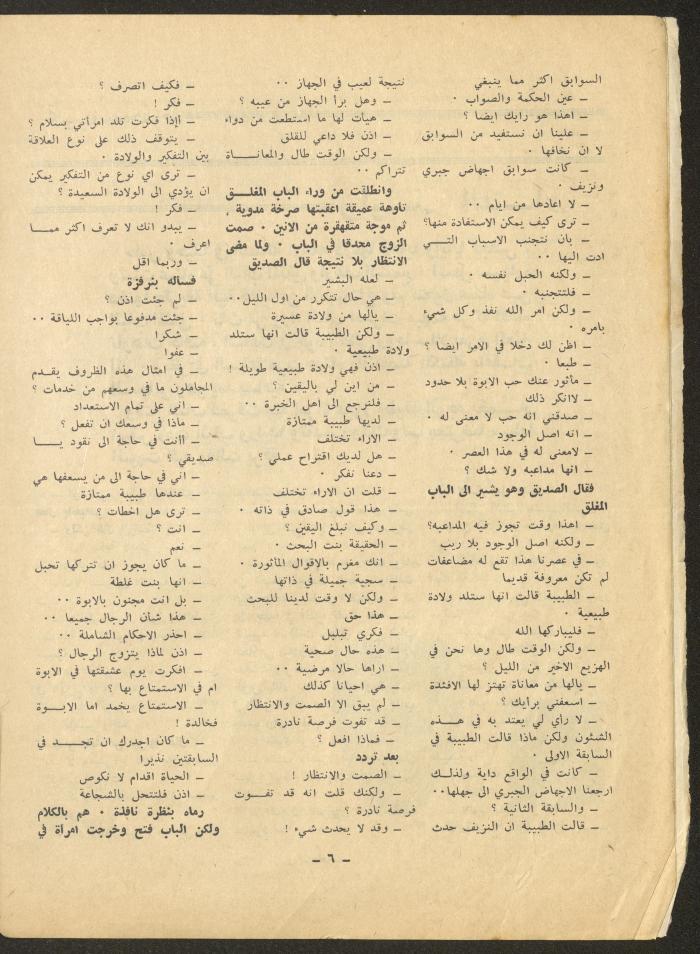 السوابق اكثر مما ينبغي
– عين الحكمة والصواب ·
– اهذا هو رايك ايضا ؟
– علينا ان نستفيد من السوابق
لا ان نخافها ·
– كانت سوابق اجهاض جبري
ونزيف ·
– لا اعادها من ايام ··
– ترى كيف يمكن الاستفادة منها؟
– بان نتجنب الاسباب التــي
ادت اليها ··
– ولكنه الحبل نفسه ·
– فلنتجنبه ·
– ولكن امر الله نفذ وكل شيء
بامره ·
– اظن لك دخلا في الامر ايضا ؟
– طبعا ·
– مأثور عنك حب الابوة بلا حدود
– لاانكر ذلك
– صدقني انه حب لا معنى له ·
– انه اصل الوجود
– لامعنى له في هذا العصر ·
– انها مداعبه ولا شك ؟
فقال الصديق وهو يشير الى الباب
المغلق
– اهذا وقت تجوز فيه المداعبه؟
– ولكنه اصل الوجود بلا ريب
– في عصرنا هذا تقع له مضاعفات
لم تكن معروفة قديما
– الطبيبة قالت انها ستلد ولادة
طبيعية ·
– فليباركها الله
– ولكن الوقت طال وها نحن في
الهزيع الاخير من الليل ؟
– يالها من معاناة تهتز لها الافئدة
– اسعفني برأيك ؟
– لا رأي لي يعتد به في هــذه
الشئون ولكن ماذا قالت الطبيبة في
السابقة الاولى ·
– كانت في الواقع داية ولذلــك
ارجعنا الاجهاض الجبري الى جهلها··
– والسابقة الثانية ؟
– قالت الطبيبة ان النزيف حدث
نتيجة لعيب في الجهاز ··
– وهل برأ الجهاز من عيبه ؟
– هيأت لها ما استطعت من دواء
– اذن فلا داعي للقلق
– ولكن الوقت طال والمعانــاة
تتراكم ··
وانطلقت من وراء الباب المغلــق
تاوهة عميقة اعقبتها صرخة مدوية ،
ثم موجة متقهقرة من الانين · صمت
الزوج محدقا في الباب · ولما مضى
الانتظار بلا نتيجة قال الصديق
– لعله البشير
– هي حال تتكرر من اول الليل··
– يالها من ولادة عسيرة
– ولكن الطبيبة قالت انها ستلد
ولادة طبيعية ·
– اذن فهي ولادة طبيعية طويلة !
– من اين لي باليقين ؟
– فلنرجع الى اهل الخبرة ··
– لديها طبيبة ممتازة
– الاراء تختلف
– هل لديك اقتراح عملي ؟
– دعنا نفكر ·
– قلت ان الاراء تختلف
– هذا قول صادق في ذاته ·
– وكيف نبلغ اليقين ؟
– الحقيقة بنت البحث ·
– انك مغرم بالاقوال المأثورة ·
– سجية جميلة في ذاتها
– ولكن لا وقت لدينا للبحث
– هذا حق
– فكري تبلبل
– هذه حال صحية
– اراها حالا مرضية ··
– هي احيانا كذلك
– لم يبق الا الصمت والانتظار
– قد تفوت فرصة نادرة
– فماذا افعل ؟
بعد تردد
– الصمت والانتظار !
– ولكنك قلت انه قد تفــوت
فرصة نادرة ؟
– وقد لا يحدث شيء !
– فكيف اتصرف ؟
– فكر !
– أإذا فكرت تلد امرأتي بسلام ؟
– يتوقف ذلك على نوع العلاقة
بين التفكير والولادة ·
– ترى اي نوع من التفكير يمكن
ان يؤدي الى الولادة السعيدة ؟
– فكر !
– يبدو انك لا تعرف اكثر ممــا
اعرف ·
– وربما اقل
فسأله بنرفزة
– لم جئت اذن ؟
– جئت مدفوعا بواجب اللياقة ··
– شكرا
– عفوا
– في امثال هذه الظروف يقــدم
المجاملون ما في وسعهم من خدمات ؟
– اني على تمام الاستعداد
– ماذا في وسعك ان تفعل ؟
– أأنت في حاجة الى نقود يــا
صديقي ؟
– اني في حاجة الى من يسعفها هي
– عندها طبيبة ممتازة
– ترى هل اخطأت ؟
– انت ؟
– نعم
– ما كان يجوز ان تتركها تحبل
– انها بنت غلطة
– بل انت مجنون بالابوة ··
– هذا شأن الرجال جميعا ··
– احذر الاحكام الشاملة ··
– اذن لماذا يتزوج الرجال ؟
– افكرت يوم عشقتها في الابوة
ام في الاستمتاع بها ؟
– الاستمتاع يخمد اما الابــوة
فخالدة !
– ما كان اجدرك ان تجــد في
السابقتين نذيرا
– الحياة اقدام لا نكوص
– اذن فلنتحل بالشجاعة
رماه بنظرة نافذة · هم بالكلام
ولكن الباب فتح وخرجت امرأة في
– ٦ –